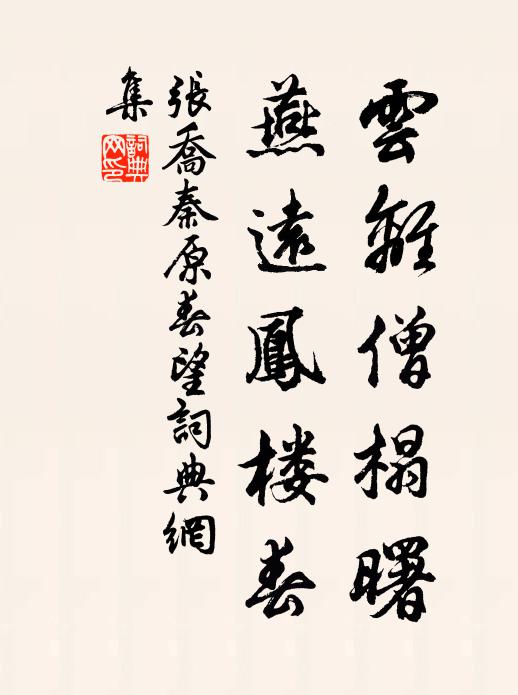 雲離僧榻曙
燕遠鳳楼春
張喬秦原春望詞典網
集
詞典
网印